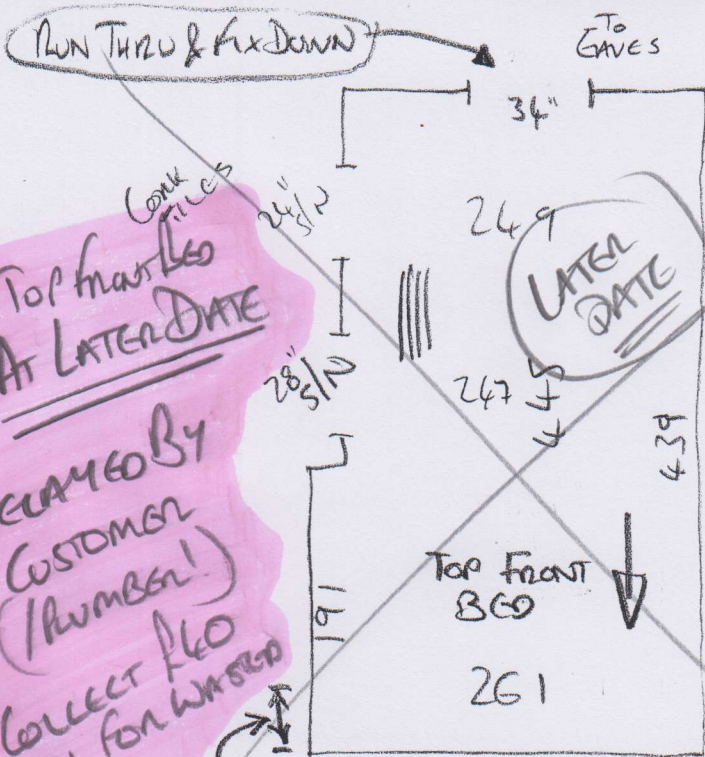 RUN THRU & FIX DOWN
TO
EAVES
34"
CORK
TILES
24"
S/N
249
LATER
DATE
TOP FRONT BED
AT LATER DATE
28"
S/N
247
439
DELAYED BY
CUSTOMER
(PLUMBER!)
COLLECT £40
FOR WASTED
191
TOP FRONT
BED
261